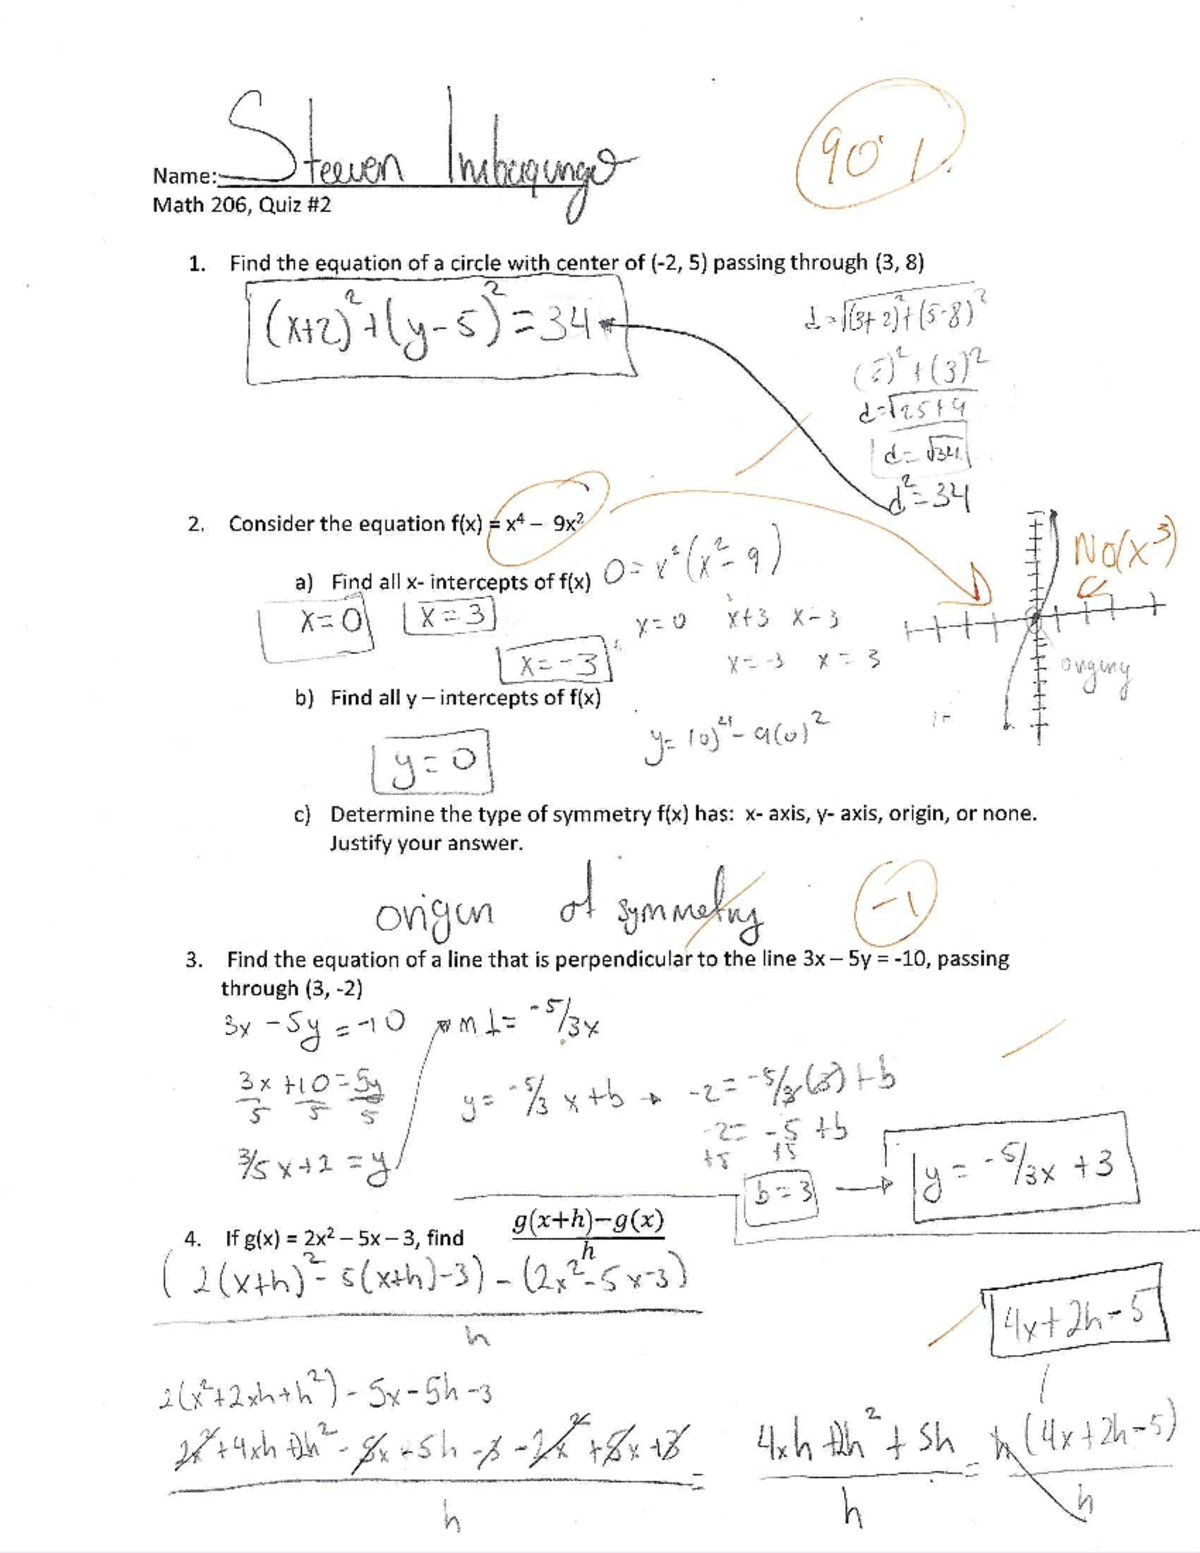 Name: Steeven Imbaquingo
90%
Math 206, Quiz #2
1. Find the equation of a circle with center of (-2, 5) passing through (3, 8)
(x+2)²+(y-5)²=34
d=√(3+2)²+(5-8)²
(5)²+(3)²
d=√25+9
d=√34
d²=34
2. Consider the equation f(x) = x⁴ – 9x²
No(x³)
0=x²(x²-9)
a) Find all x- intercepts of f(x)
x=0 x=3
x=0 x+3 x-3
x=-3
x=-3 x=3
b) Find all y – intercepts of f(x)
y=(0)⁴-9(0)²
y=0
c) Determine the type of symmetry f(x) has: x- axis, y- axis, origin, or none.
Justify your answer.
origin of symmetry
-1
3. Find the equation of a line that is perpendicular to the line 3x – 5y = -10, passing
through (3, -2)
3x-5y=-10 m⊥=-5/3x
3x+10=5y
5 5 5
y=-5/3x+b → -2=-5/3(3)+b
-2=-5+b
+5 +5
3/5x+2=y
b=3 → y=-5/3x+3
4. If g(x) = 2x² – 5x – 3, find g(x+h)−g(x)
h
(2(x+h)²-5(x+h)-3)-(2x²-5x-3)
h
4x+2h-5
2(x²+2xh+h²)-5x-5h-3
2x²+4xh+2h²-5x-5h-3-2x²+5x+3 = 4xh+2h²+5h = h(4x+2h-5)
h h h